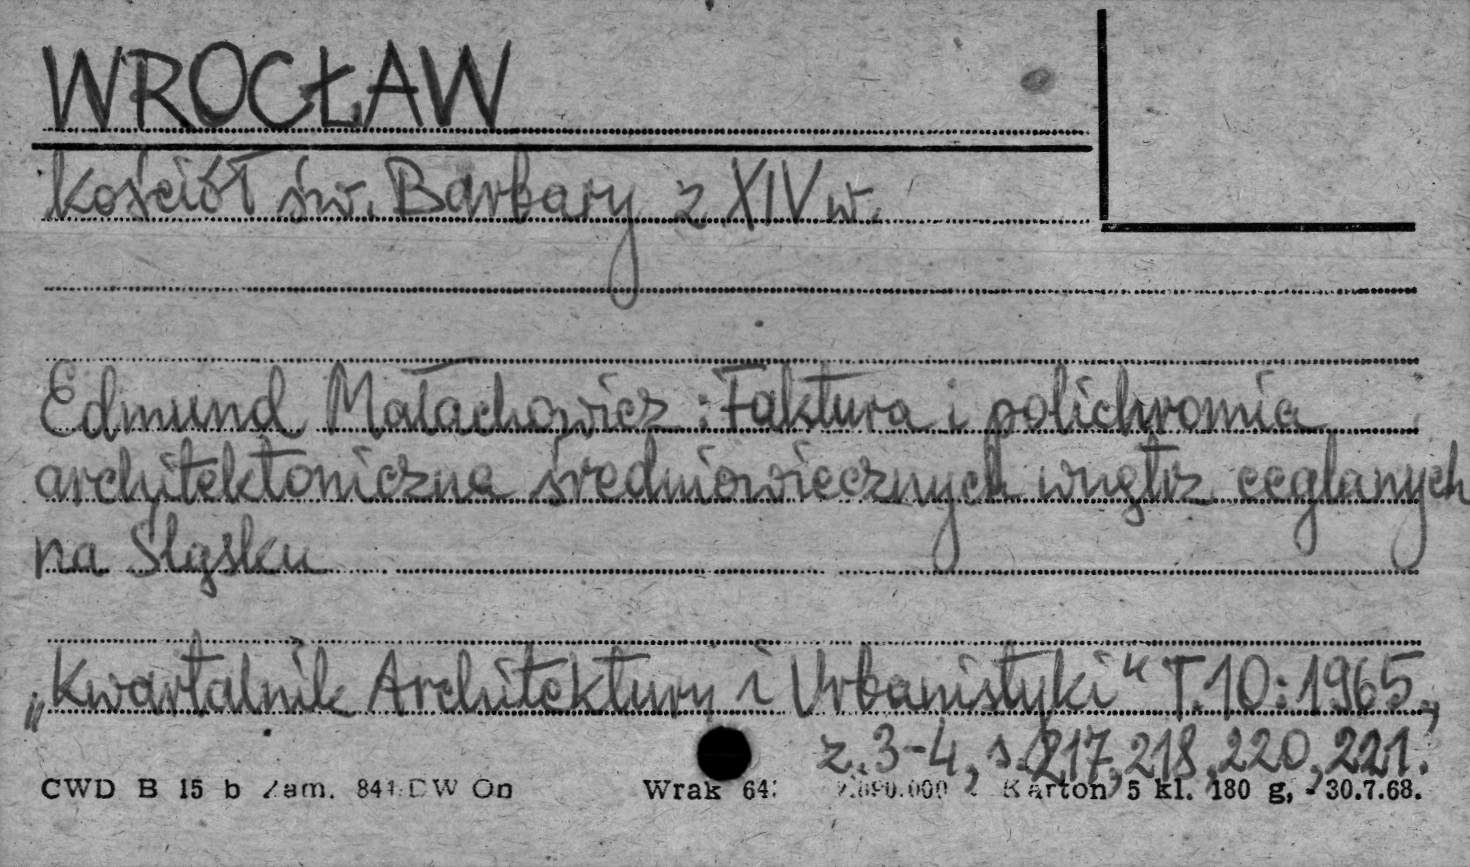 WROCŁAW
Kościół św. Barbary z XIV w.
Edmund Małachowicz: Faktura i polichromia
architektoniczna średniowiecznych wnętrz ceglanych
na Śląsku
„Kwartalnik Architektury i Urbanistyki" T.10:1965.,
z.3-4, s.217,218,220,221.
CWD B 15 b Zam. 841 DW On Wrak 64 Karton 5 kl. 180 g, - 30.7.68.